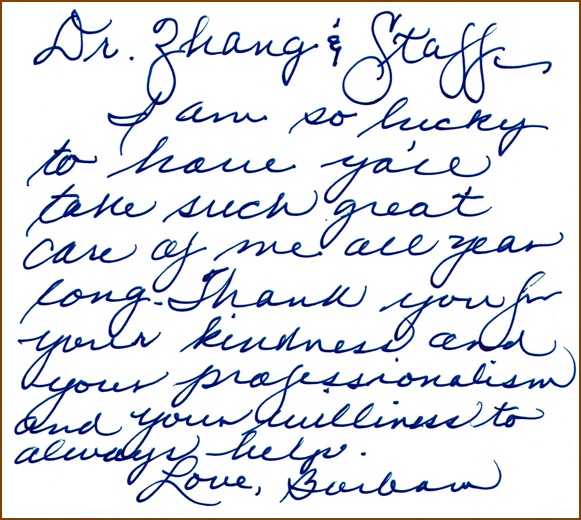 Dr. Zhang & Staff,
I am so lucky
to have ya'll
take such great
care of me all year
long. Thank you for
your kindness and
your professionalism
and your williness to
always help.
Love, Barbara